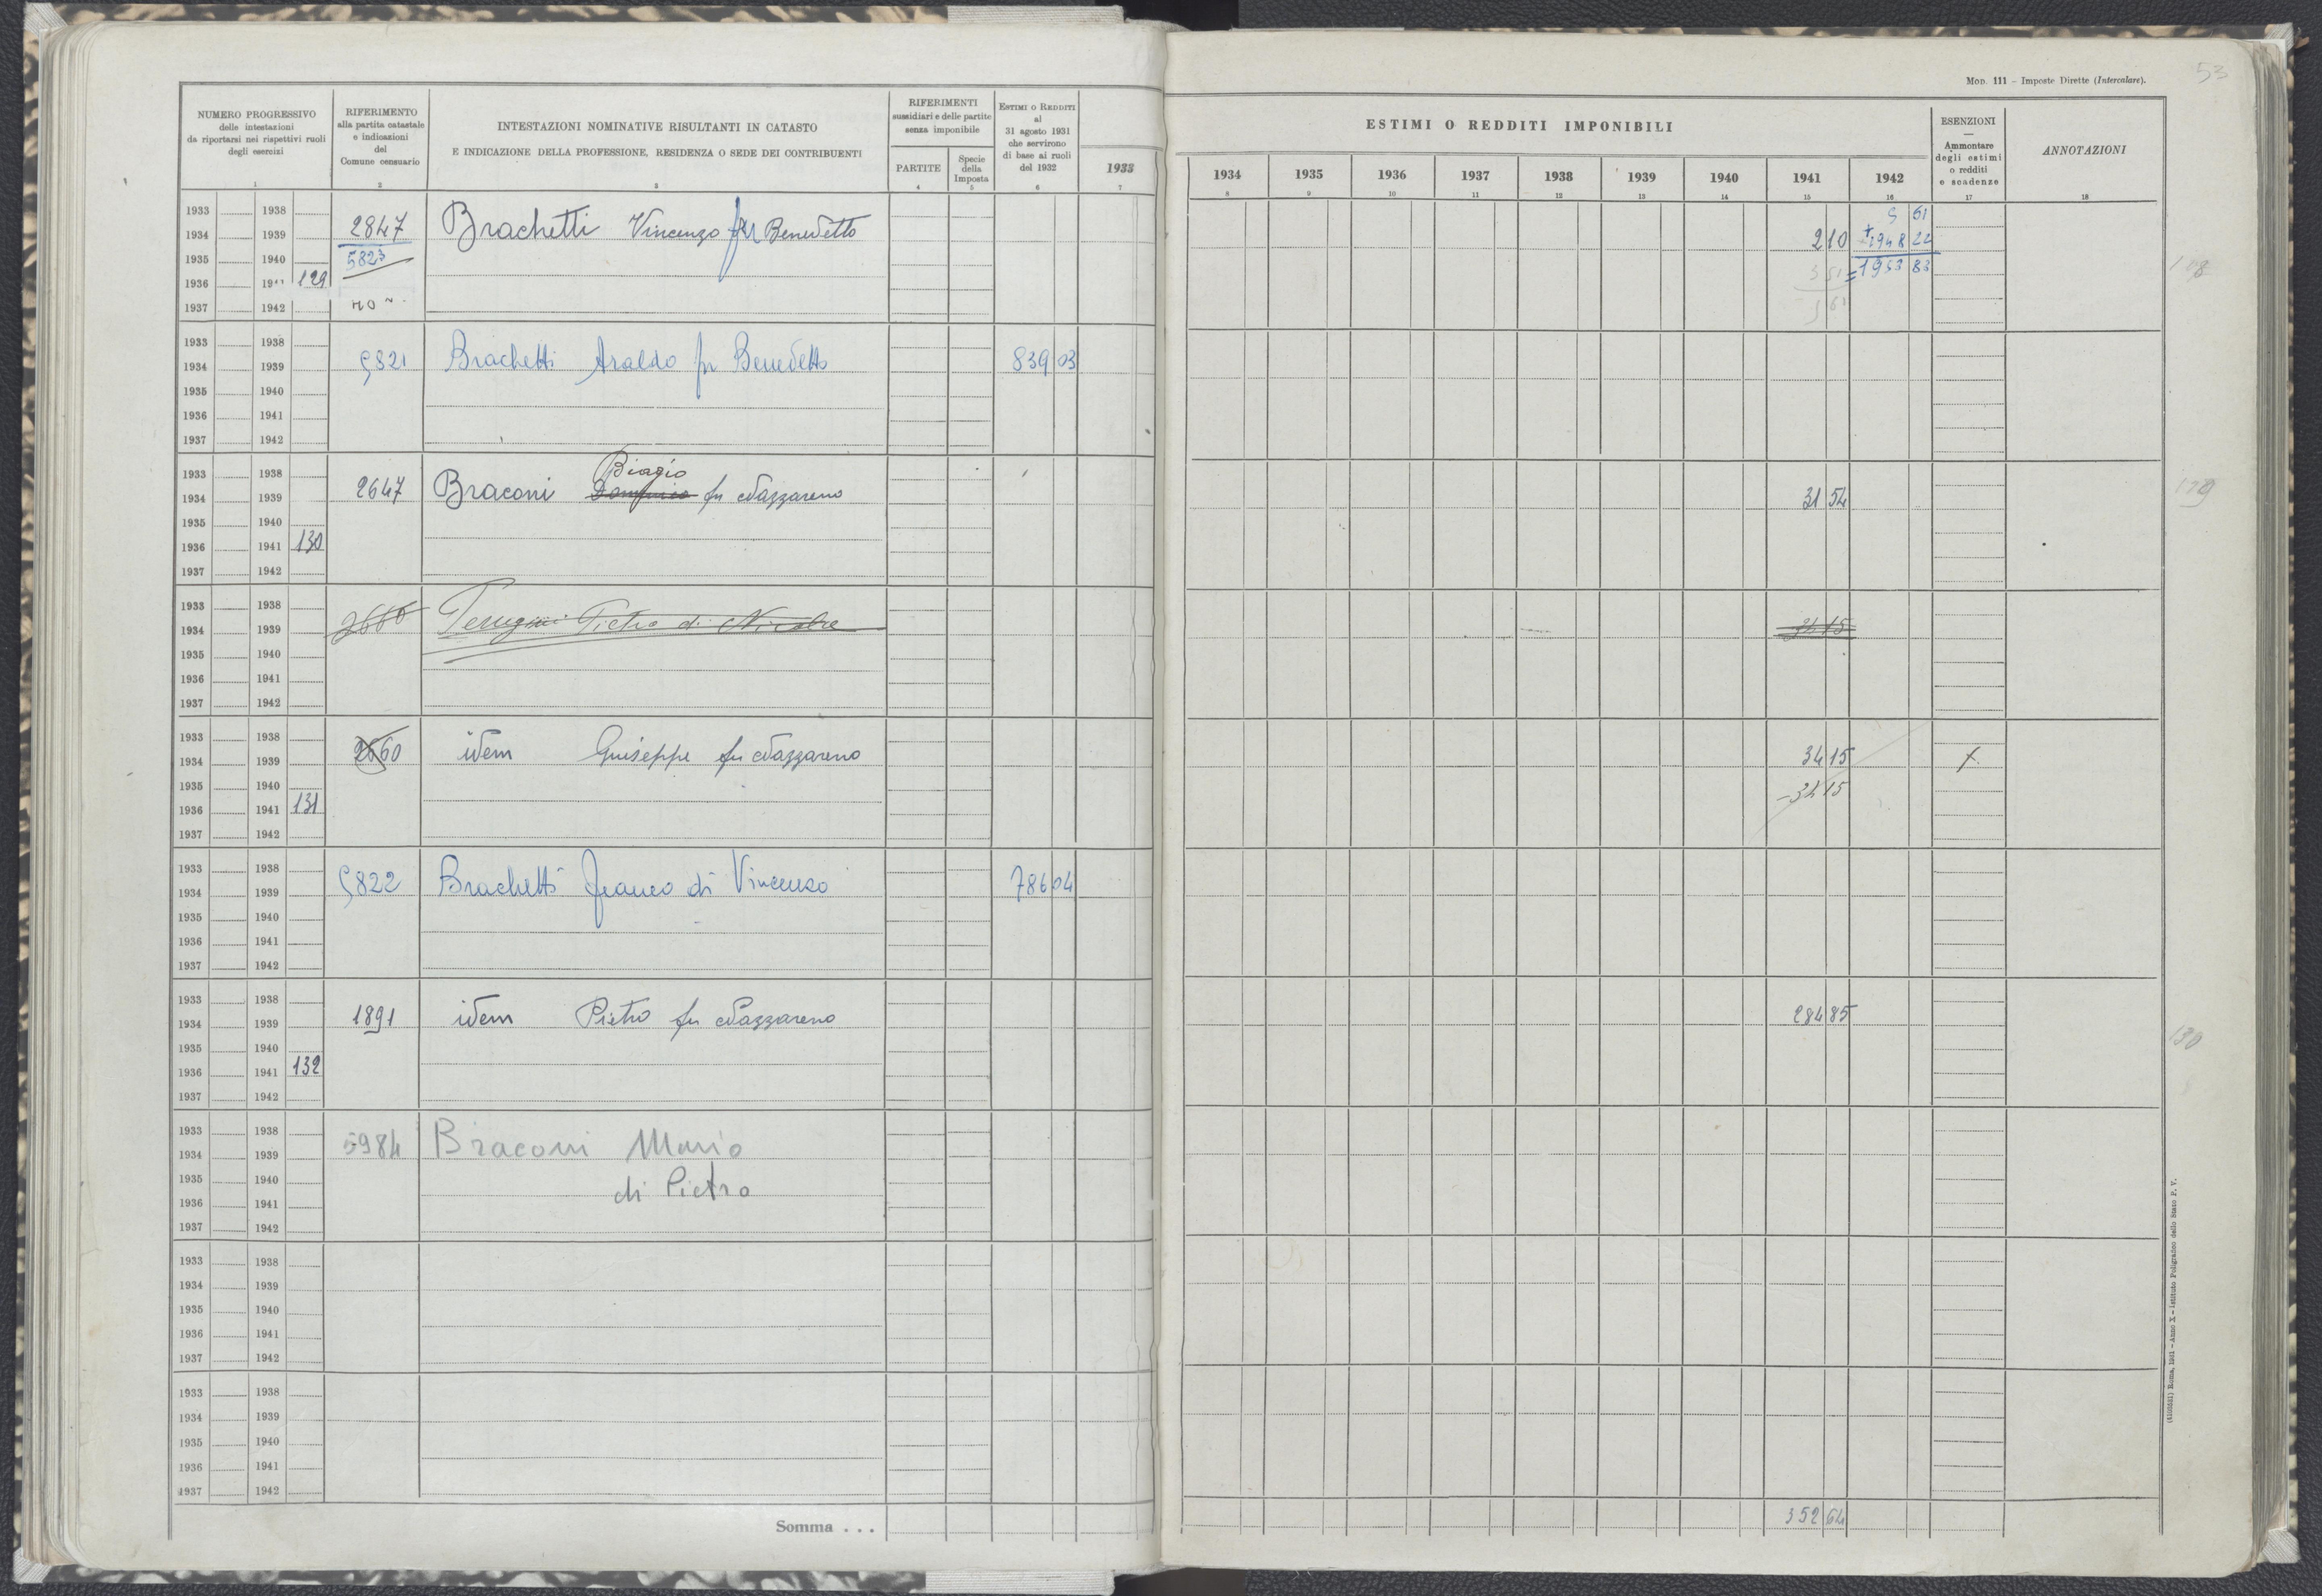 53
MOD. 111 – Imposte Dirette (Intercalare).
NUMERO PROGRESSIVO
delle intestazioni
da riportarsi nei rispettivi ruoli
degli esercizi
RIFERIMENTO
alla partita catastale
e indicazioni
del
Comune censuario
INTESTAZIONI NOMINATIVE RISULTANTI IN CATASTO
E INDICAZIONE DELLA PROFESSIONE, RESIDENZA O SEDE DEI CONTRIBUENTI
RIFERIMENTI
sussidiari e delle partite
senza imponibile
PARTITE
Specie
della
Imposta
ESTIMI O REDDITI
al
31 agosto 1931
che servirono
di base ai ruoli
del 1932
1933
ESTIMI O REDDITI IMPONIBILI
1934 1935 1936 1937 1938 1939 1940 1941 1942
ESENZIONI
—
Ammontare
degli estimi
o redditi
e scadenze
ANNOTAZIONI
1 2 3 4 5 6 7 8 9 10 11 12 13 14 15 16 17 18
1933 1938 5 61
1934 1939 2847 Brachetti Vincenzo fu Benedetto 2 10 + 1948 22
1935 1940 5823 3 51 = 1953 83
1936 19 129
1937 1942
1933 1938
1934 1939 5821 Brachetti Araldo fu Benedetto 839 03
1935 1940
1936 1941
1937 1942
1933 1938 Biagio
1934 1939 2647 Braconi fu Nazzareno 31 54 129
1935 1940
1936 1941 130
1937 1942
1933 1938
1934 1939 Perugini Pietro di Nicola 34 15
1935 1940
1936 1941
1937 1942
1933 1938
1934 1939 2660 idem Guiseppe fu Nazzareno 34 15 X
1935 1940 – 34 15
1936 1941 131
1937 1942
1933 1938
1934 1939 5822 Brachetti Franco di Vincenzo 786 04
1935 1940
1936 1941
1937 1942
1933 1938
1934 1939 1891 idem Pietro fu Nazzareno 284 85
1935 1940 130
1936 1941 132
1937 1942
1933 1938
1934 1939 5984 Braconi Mario
1935 1940 di Pietro
1936 1941
1937 1942
1933 1938
1934 1939
1935 1940
1936 1941
1937 1942
1933 1938
1934 1939
1935 1940
1936 1941
1937 1942
Somma . . . 352 64
Roma, 1931 – Anno X – Istituto Poligrafico dello Stato P. V.